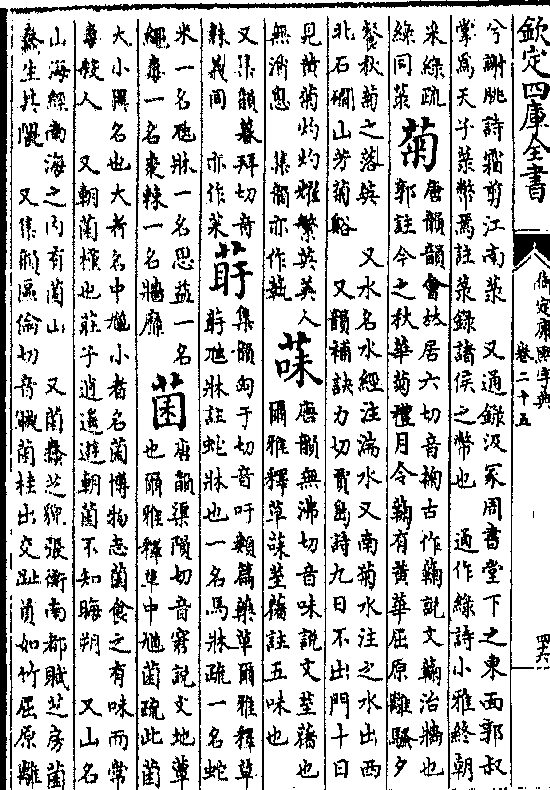 欽定四庫全書
御定康熙字典
卷二十五
四六
兮謝脁詩霜剪江南菉 又通錄汲冢周書堂下之東面郭叔
掌為天子菉幣焉註菉錄諸侯之幣也 通作綠詩小雅終朝
采綠疏
綠同菉
菊
唐韻韻會𠀤居六切音掬古作蘜說文蘜治牆也
郭註今之秋華菊禮月令蘜有黃華屈原離騷夕
餐秋菊之落英 又水名水經注湍水又南菊水注之水出西
北石磵山芳菊谿 又韻補訣力切賈島詩九日不出門十日
見黃菊灼灼㸌繁英美人
無消息 集韻亦作
菋
唐韻無沸切音味說文荎藸也
爾雅釋草菋荎藸註五味也
又集韻莫拜切音
韎義同 亦作
集韻匈于切音吁類篇藥草爾雅釋草
虺牀註蛇牀也一名馬牀疏一名蛇
米一名虺牀一名思益一名
繩毒一名棗棘一名牆蘼
菌
唐韻渠隕切音窘說文地蕈
也爾雅釋草中馗菌疏此菌
大小異名也大者名中馗小者名菌博物志菌食之有味而常
毒殺人 又朝菌槿也莊子逍遙遊朝菌不知晦朔 又山名
山海經南海之內有菌山 又菌蠢芝貌張衡南都賦芝房菌
蠢生其隈 又集韻區倫切音 菌桂出交趾員如竹屈原離